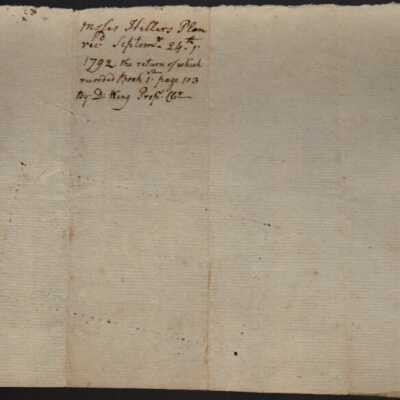 Moses Hellers Plan
recd Septemr. 24th,
1792 the return of which
recorded Book 1st page 113
By D. King Props. Clk